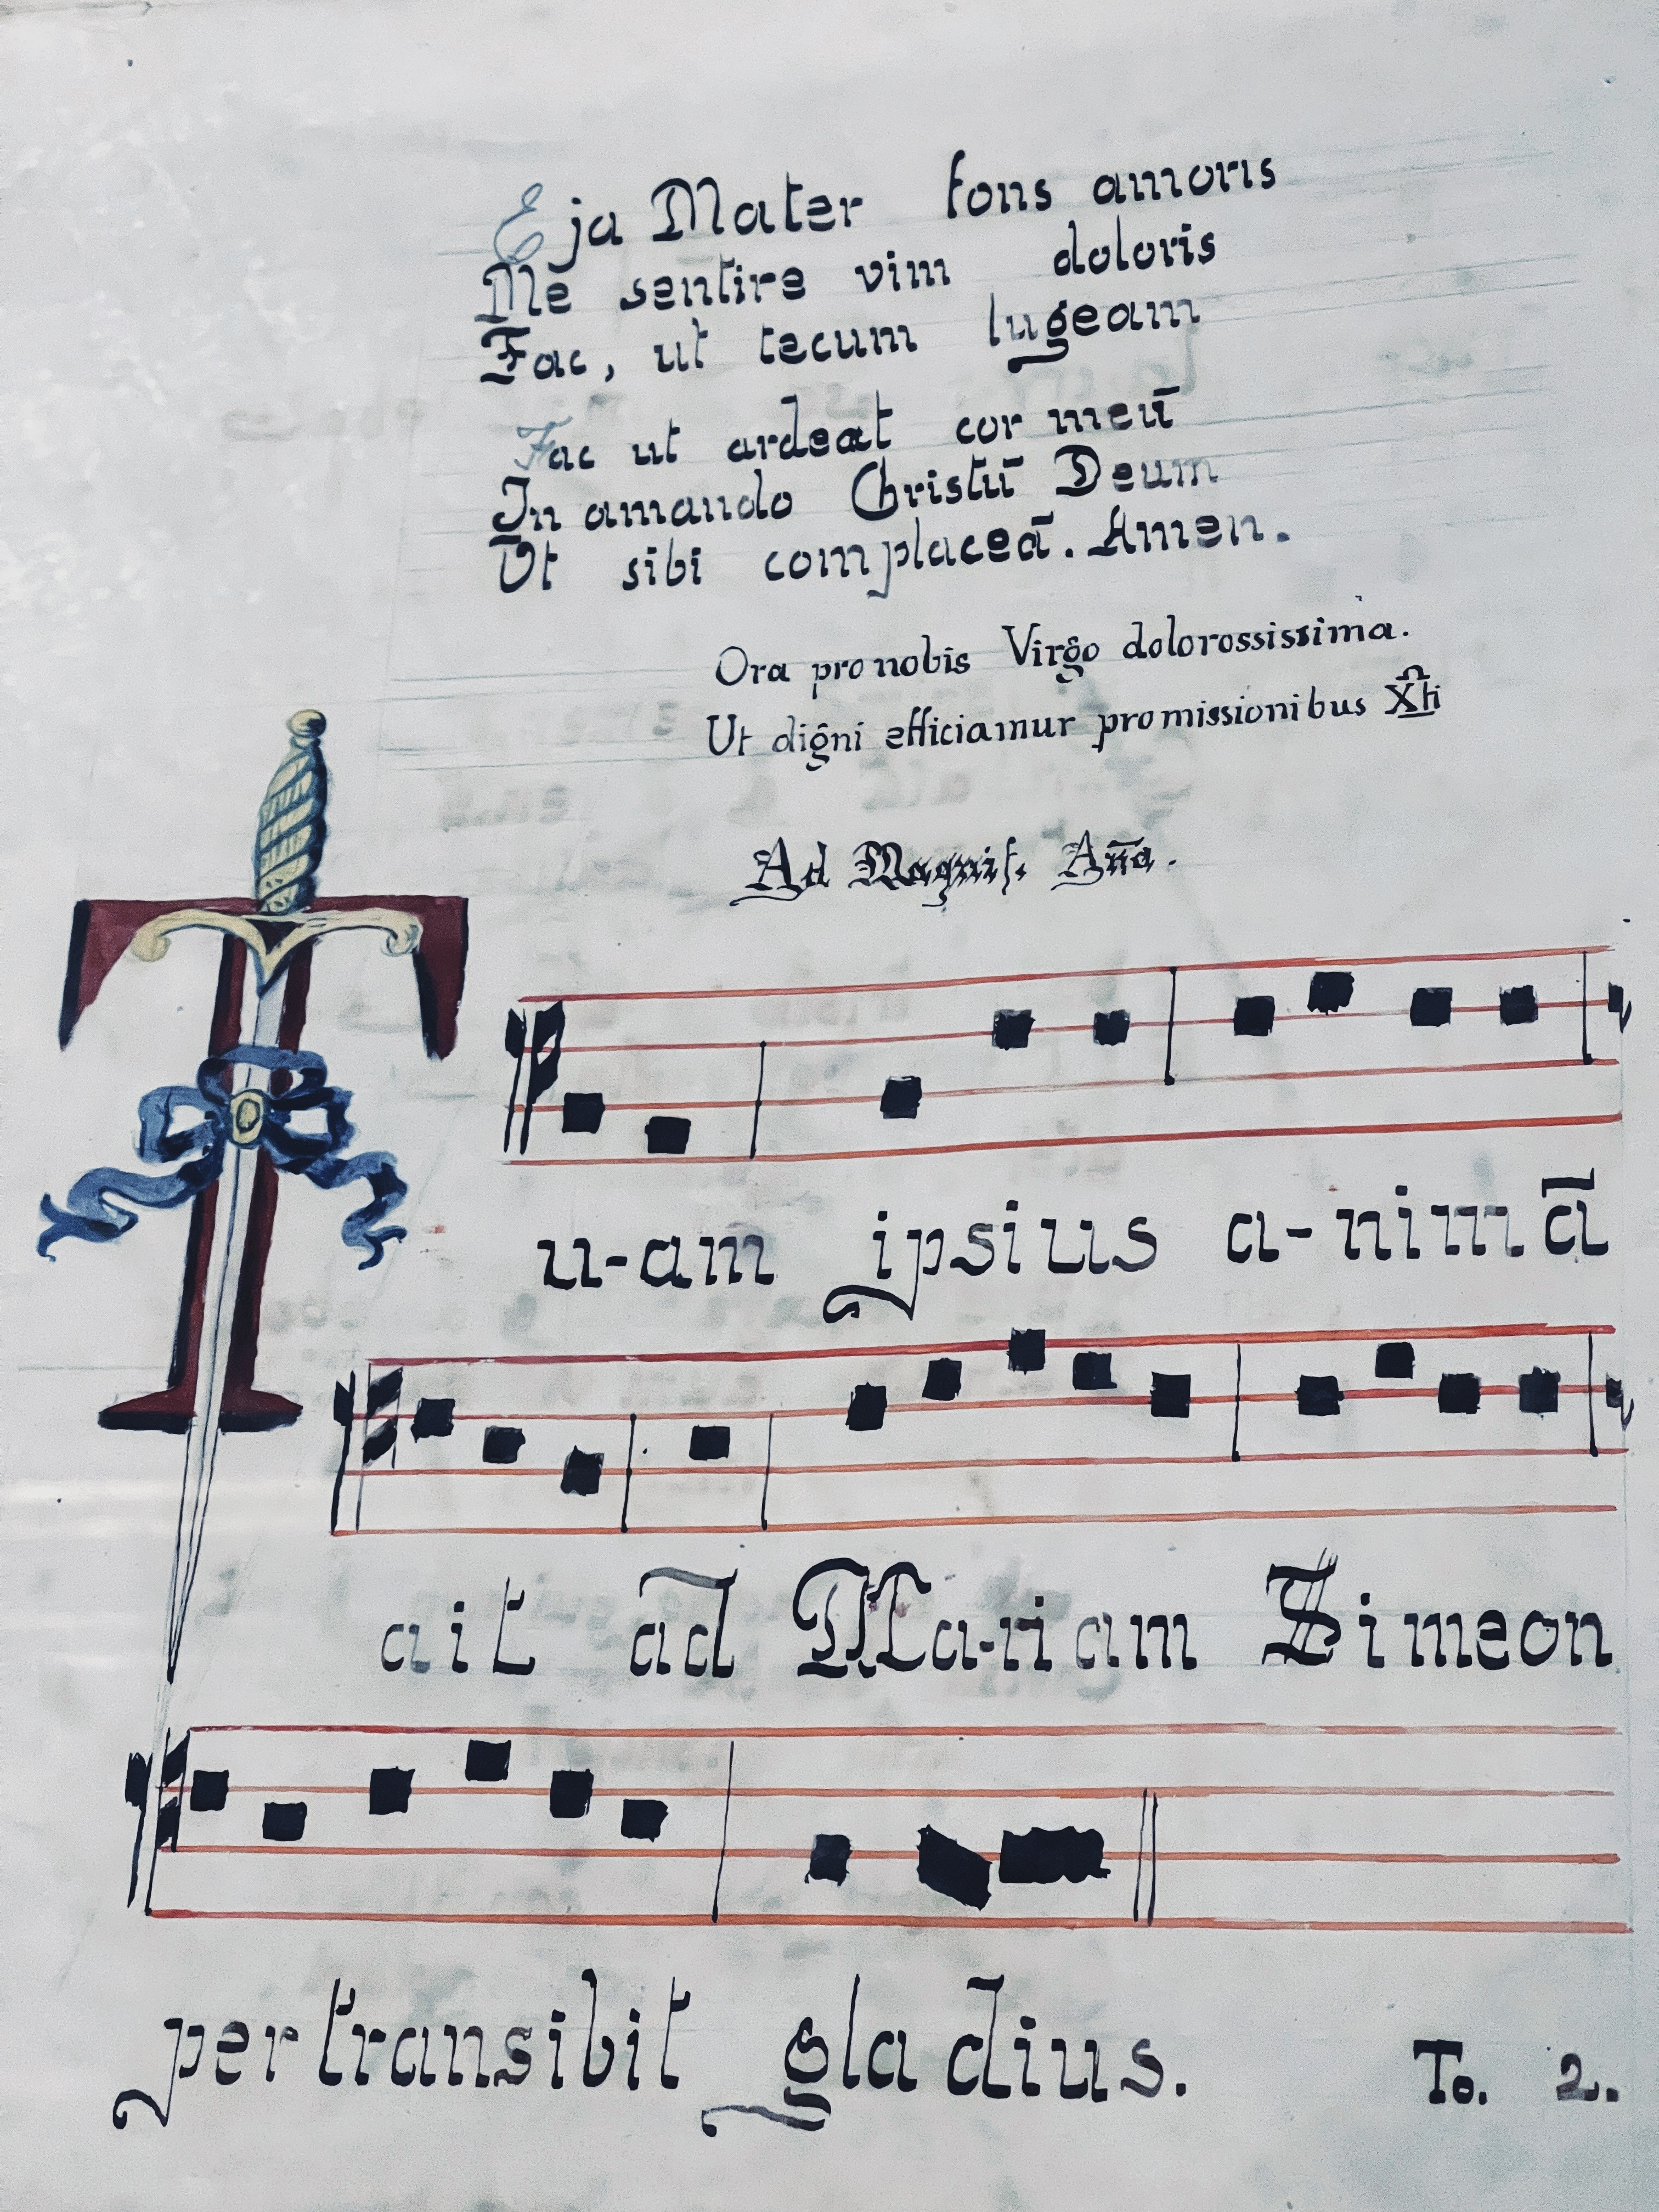 Eja Mater fons amoris
Me sentire vim doloris
Fac, ut tecum lugeam
Fac ut ardeat cor meū
In amando Christū Deum
Ut sibi complaceā. Amen.
Ora pro nobis Virgo dolorossissima.
Ut digni efficiamur promissionibus Xti
Ad Magnif. Aña.
Tu-am ipsius a-nimā
ait ad Ma-riam Simeon
pertransibit gladius. To. 2.